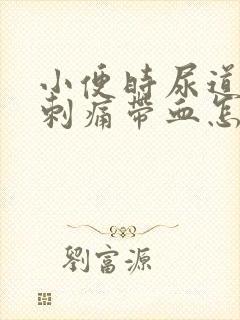 小便时尿道
刺痛带血怎
劉富源